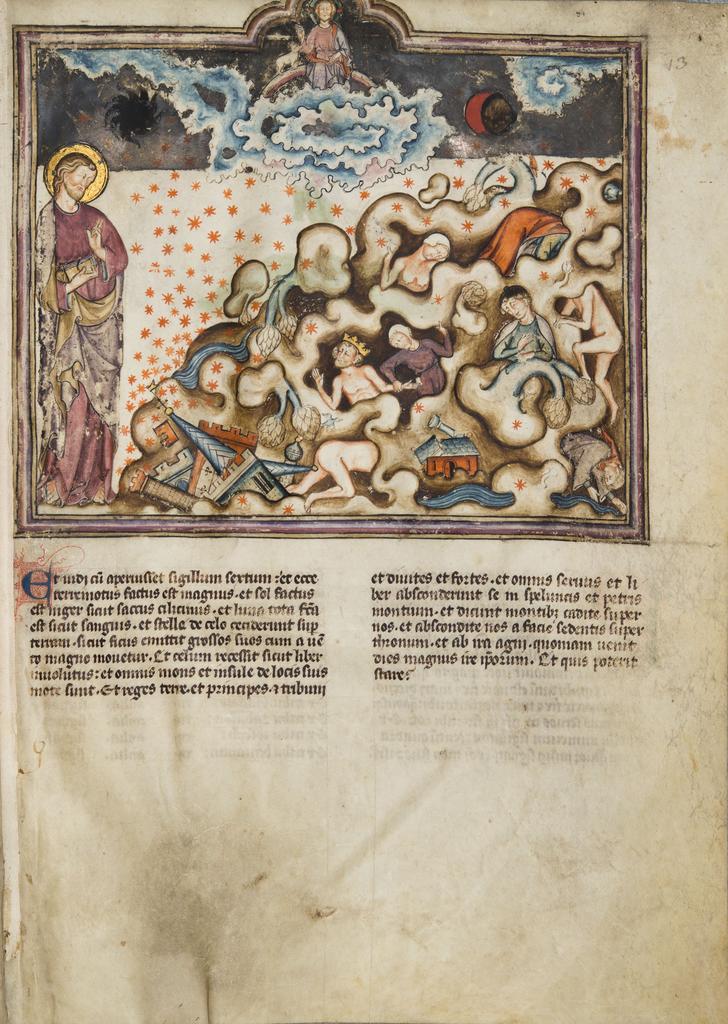 13
Et vidi cū aperuisset sigillum sextum : et ecce
terremotus factus est magnus . et sol factus
est niger sicut saccus cilicinus . et luna tota fcā
est sicut sanguis . et stelle de celo ceciderunt sup
terram . sicut ficus emittit grossos suos cum a vē
to magno movetur . Et celum recessit sicut liber
involutus : et omnis mons et insule de locis suis
mote sunt . Et reges terre . et principes . ⁊ tribuni
et divites et fortes . et omnis servus et li
ber absconderunt se in speluncis et petris
montium . et dicunt montibꝫ cadite super
nos . et abscondite nos a facie sedentis super
thronum . et ab ira agni . quoniam venit
dies magnus ire ipsorum . Et quis poterit
stare